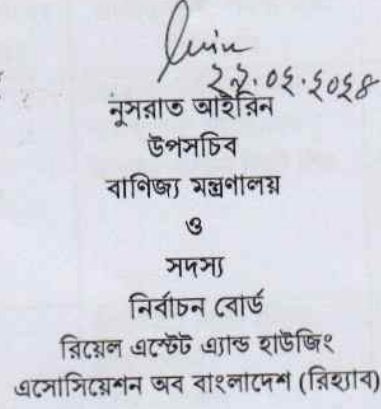 ২৯.০২.২০২৪
নুসরাত আইরিন
উপসচিব
বাণিজ্য মন্ত্রণালয়
ও
সদস্য
নির্বাচন বোর্ড
রিয়েল এস্টেট এ্যান্ড হাউজিং
এসোসিয়েশন অব বাংলাদেশ (রিহ্যাব)